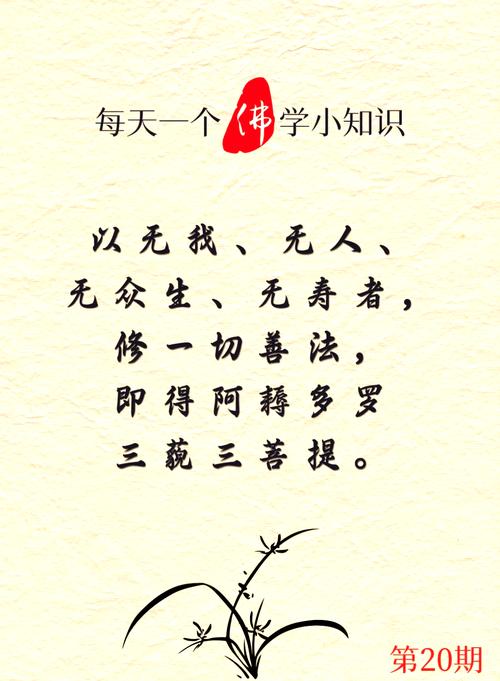 每天一个佛学小知识
以无我、无人、
无众生、无寿者，
修一切善法，
即得阿耨多罗
三藐三菩提。
第20期